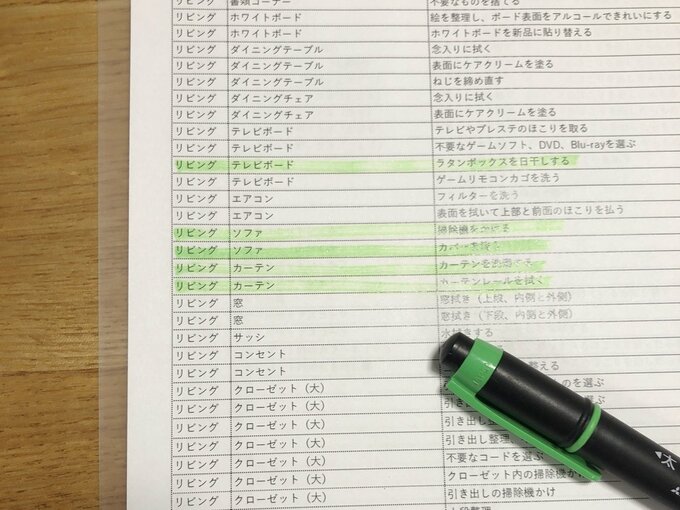 リビング 書類コーナー 不要なものを捨てる
リビング ホワイトボード 絵を整理し、ボード表面をアルコールできれいにする
リビング ホワイトボード ホワイトボードを新品に貼り替える
リビング ダイニングテーブル 念入りに拭く
リビング ダイニングテーブル 表面にケアクリームを塗る
リビング ダイニングテーブル ねじを締め直す
リビング ダイニングチェア 念入りに拭く
リビング ダイニングチェア 表面にケアクリームを塗る
リビング テレビボード テレビやプレステのほこりを取る
リビング テレビボード 不要なゲームソフト、DVD、Blu-rayを選ぶ
リビング テレビボード ラタンボックスを日干しする
リビング テレビボード ゲームリモコンカゴを洗う
リビング エアコン フィルターを洗う
リビング エアコン 表面を拭いて上部と前面のほこりを払う
リビング ソファ 掃除機をかける
リビング ソファ カバーを
リビング カーテン カーテンを
リビング カーテン カーテンレールを拭く
リビング 窓 窓拭き（上段、内側と外側）
リビング 窓 窓拭き（下段、内側と外側）
リビング サッシ 水拭きする
リビング コンセント
リビング コンセント 替える
リビング クローゼット（大） のを選ぶ
リビング クローゼット（大） 引き出し を選ぶ
リビング クローゼット（大） 引き出し整
リビング クローゼット（大） 引き出し整理、
リビング クローゼット（大） 不要なコードを選ぶ
リビング クローゼット（大） クローゼット内の掃除機かけ
リビング クローゼット（大） 引き出しの掃除機かけ